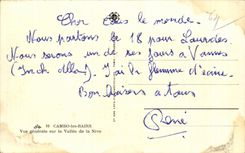 Cher tous le monde.
Nous partons le 18 pour Lourdes
Nous serons un de ses jours a Vannes
(Inch Allah) J'ai la flemme d'écrire.
Bon Baisers a tous
René
19 CAMBO-les-BAINS
Vue générale sur la Vallée de la Nive